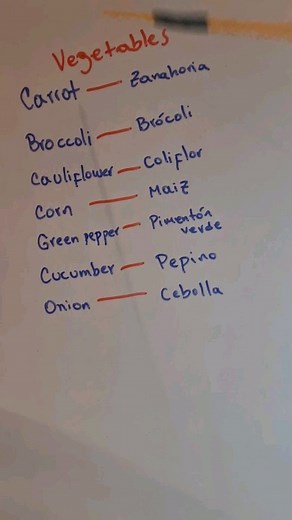 Vegetables
Carrot — Zanahoria
Broccoli — Brócoli
Cauliflower — Coliflor
Corn — Maiz
Green Pepper — Pimentón
verde
Cucumber — Pepino
Onion — Cebolla